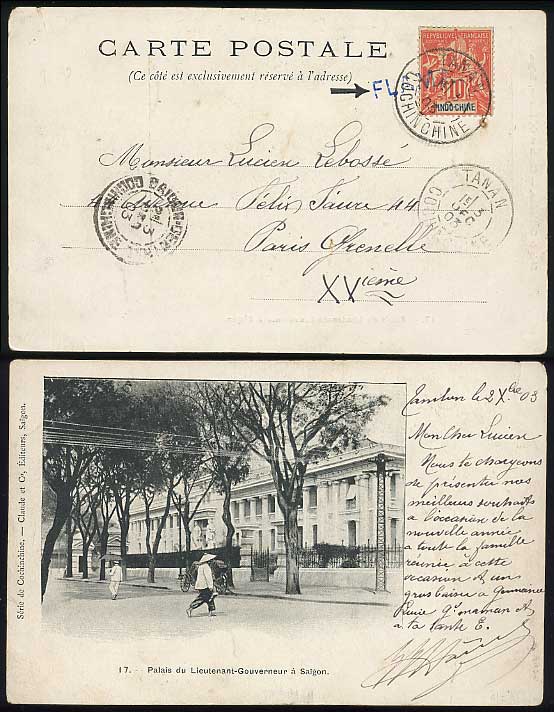 CARTE POSTALE
(Ce côté est exclusivement réservé à l'adresse)
FL
REPUBLIQUE FRANÇAISE
10
INDO-CHINE
TANAN
COCHINCHINE
Monsieur Lucien Lebossé
Avenue Félix Faure 44
Paris Grenelle
XVième
TANAN
Série de Cochinchine, — Claude et Cie, Éditeurs, Saïgon.
17. - Palais du Lieutenant-Gouverneur à Saïgon.
le 2 Xbre 03
Mon Cher Lucien
Nous te chargeons
de présenter nos
meilleurs souhaits
à l'occasion de la
nouvelle année
à toute la famille
réunie à cette
occasion et un
gros baiser à
et
à ta tante E.